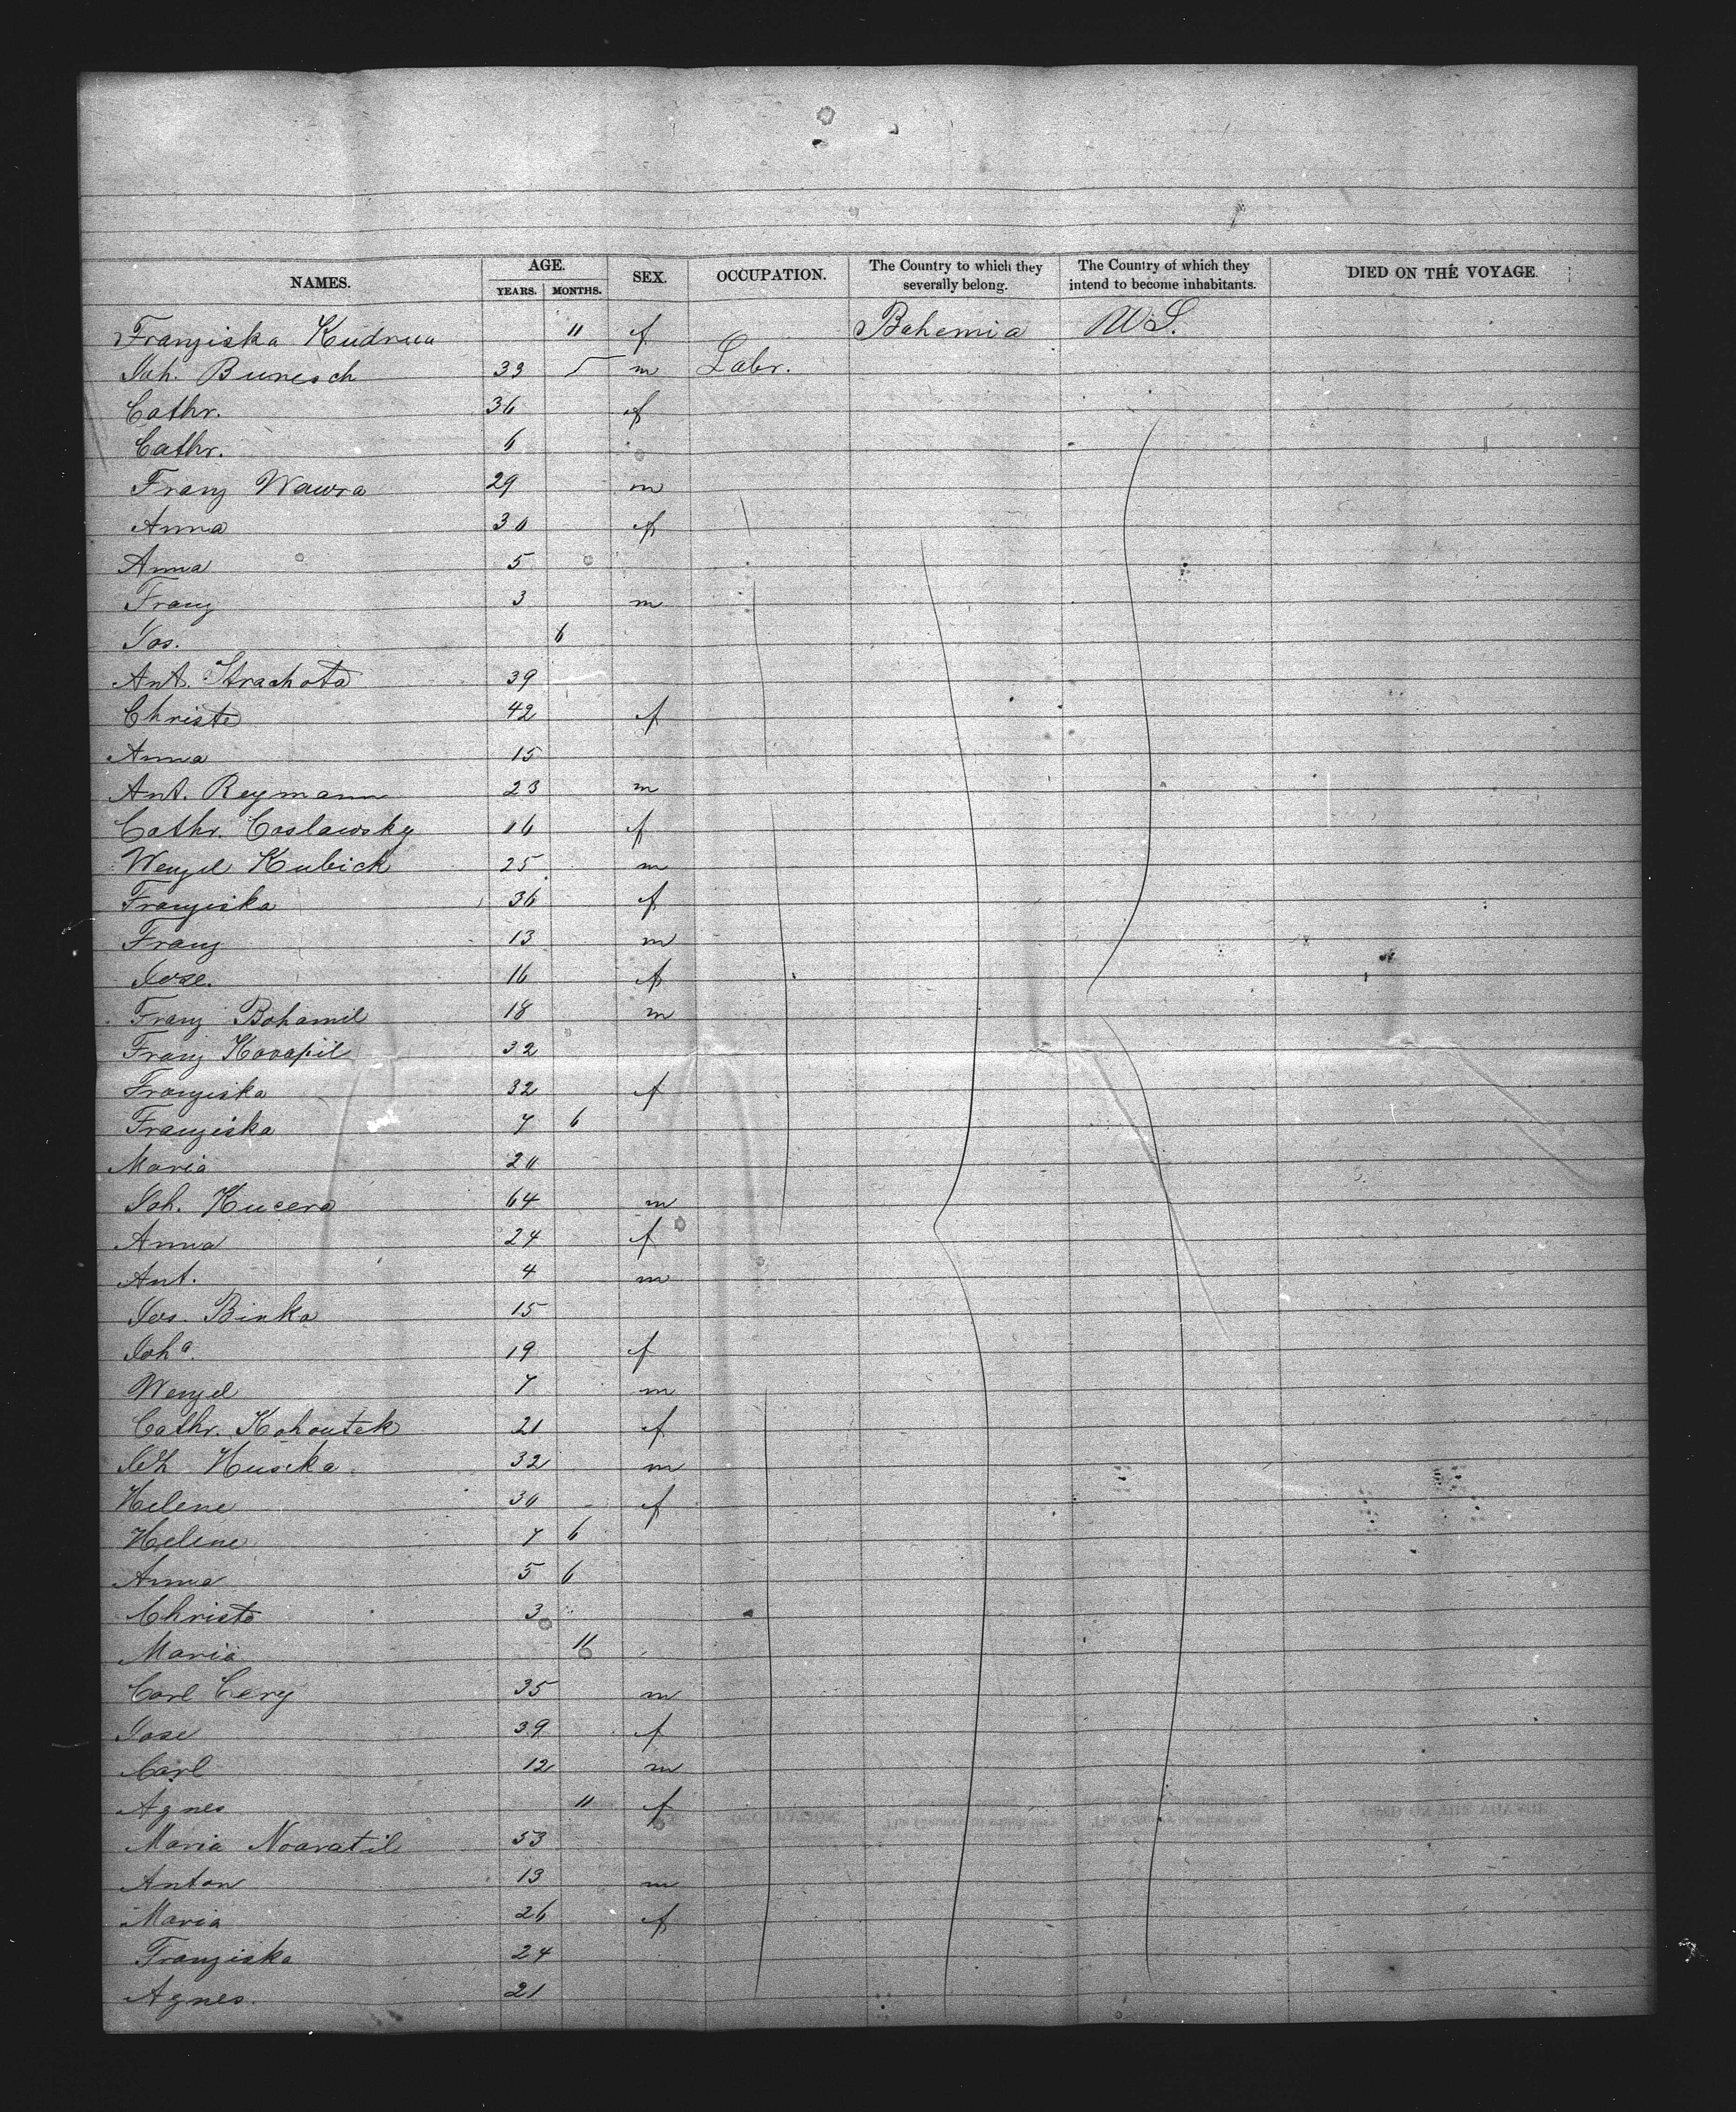 NAMES. AGE. YEARS. MONTHS. SEX. OCCUPATION. The Country to which they severally belong. The Country of which they intend to become inhabitants. DIED ON THE VOYAGE.
Franziska Kudrna 11 f Bohemia U.S.
Joh. Bunesch 33 m Labr.
Cathr. 36 f
Cathr. 6
Franz Wawra 29 m
Anna 30 f
Anna 5
Franz 3 m
Jos. 6
Ant. Strachota 39
Christe 42 f
Anna 15
Ant. Reymann 23 m
Cathr. Caslawsky 16 f
Wenzel Kubick 25 m
Franziska 36 f
Franz 13 m
Jose. 16 f
Franz Bohamil 18 m
Franz 32
Franziska 32 f
Franziska 7 6
Maria 20
Joh. Kucera 64 m
Anna 24 f
Ant. 4 m
Jos. Binka 15
Joha. 19 f
Wenzel 7 m
Cathr. Kohoutek 21 f
Huska 32 m
Helene 30 f
Helene 7 6
Anna 5 6
Christe 3
Maria 11
Carl Cery 35 m
Jose 39 f
Carl 12 m
Agnes 11 f
Maria Noavatil 53
Anton 13 m
Maria 26 f
Franziska 24
Agnes. 21